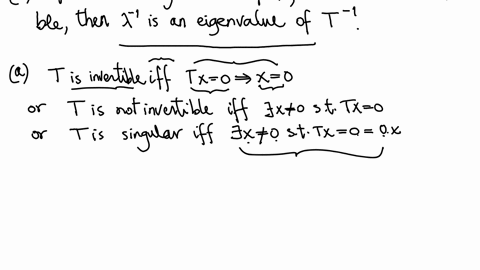 ble, then λ⁻¹ is an eigenvalue of T⁻¹.
(a) T is invertible iff Tx=0 ⇒ x=0
or T is not invertible iff ∃x≠0 s.t. Tx=0
or T is singular iff ∃x≠0 s.t. Tx=0=0x